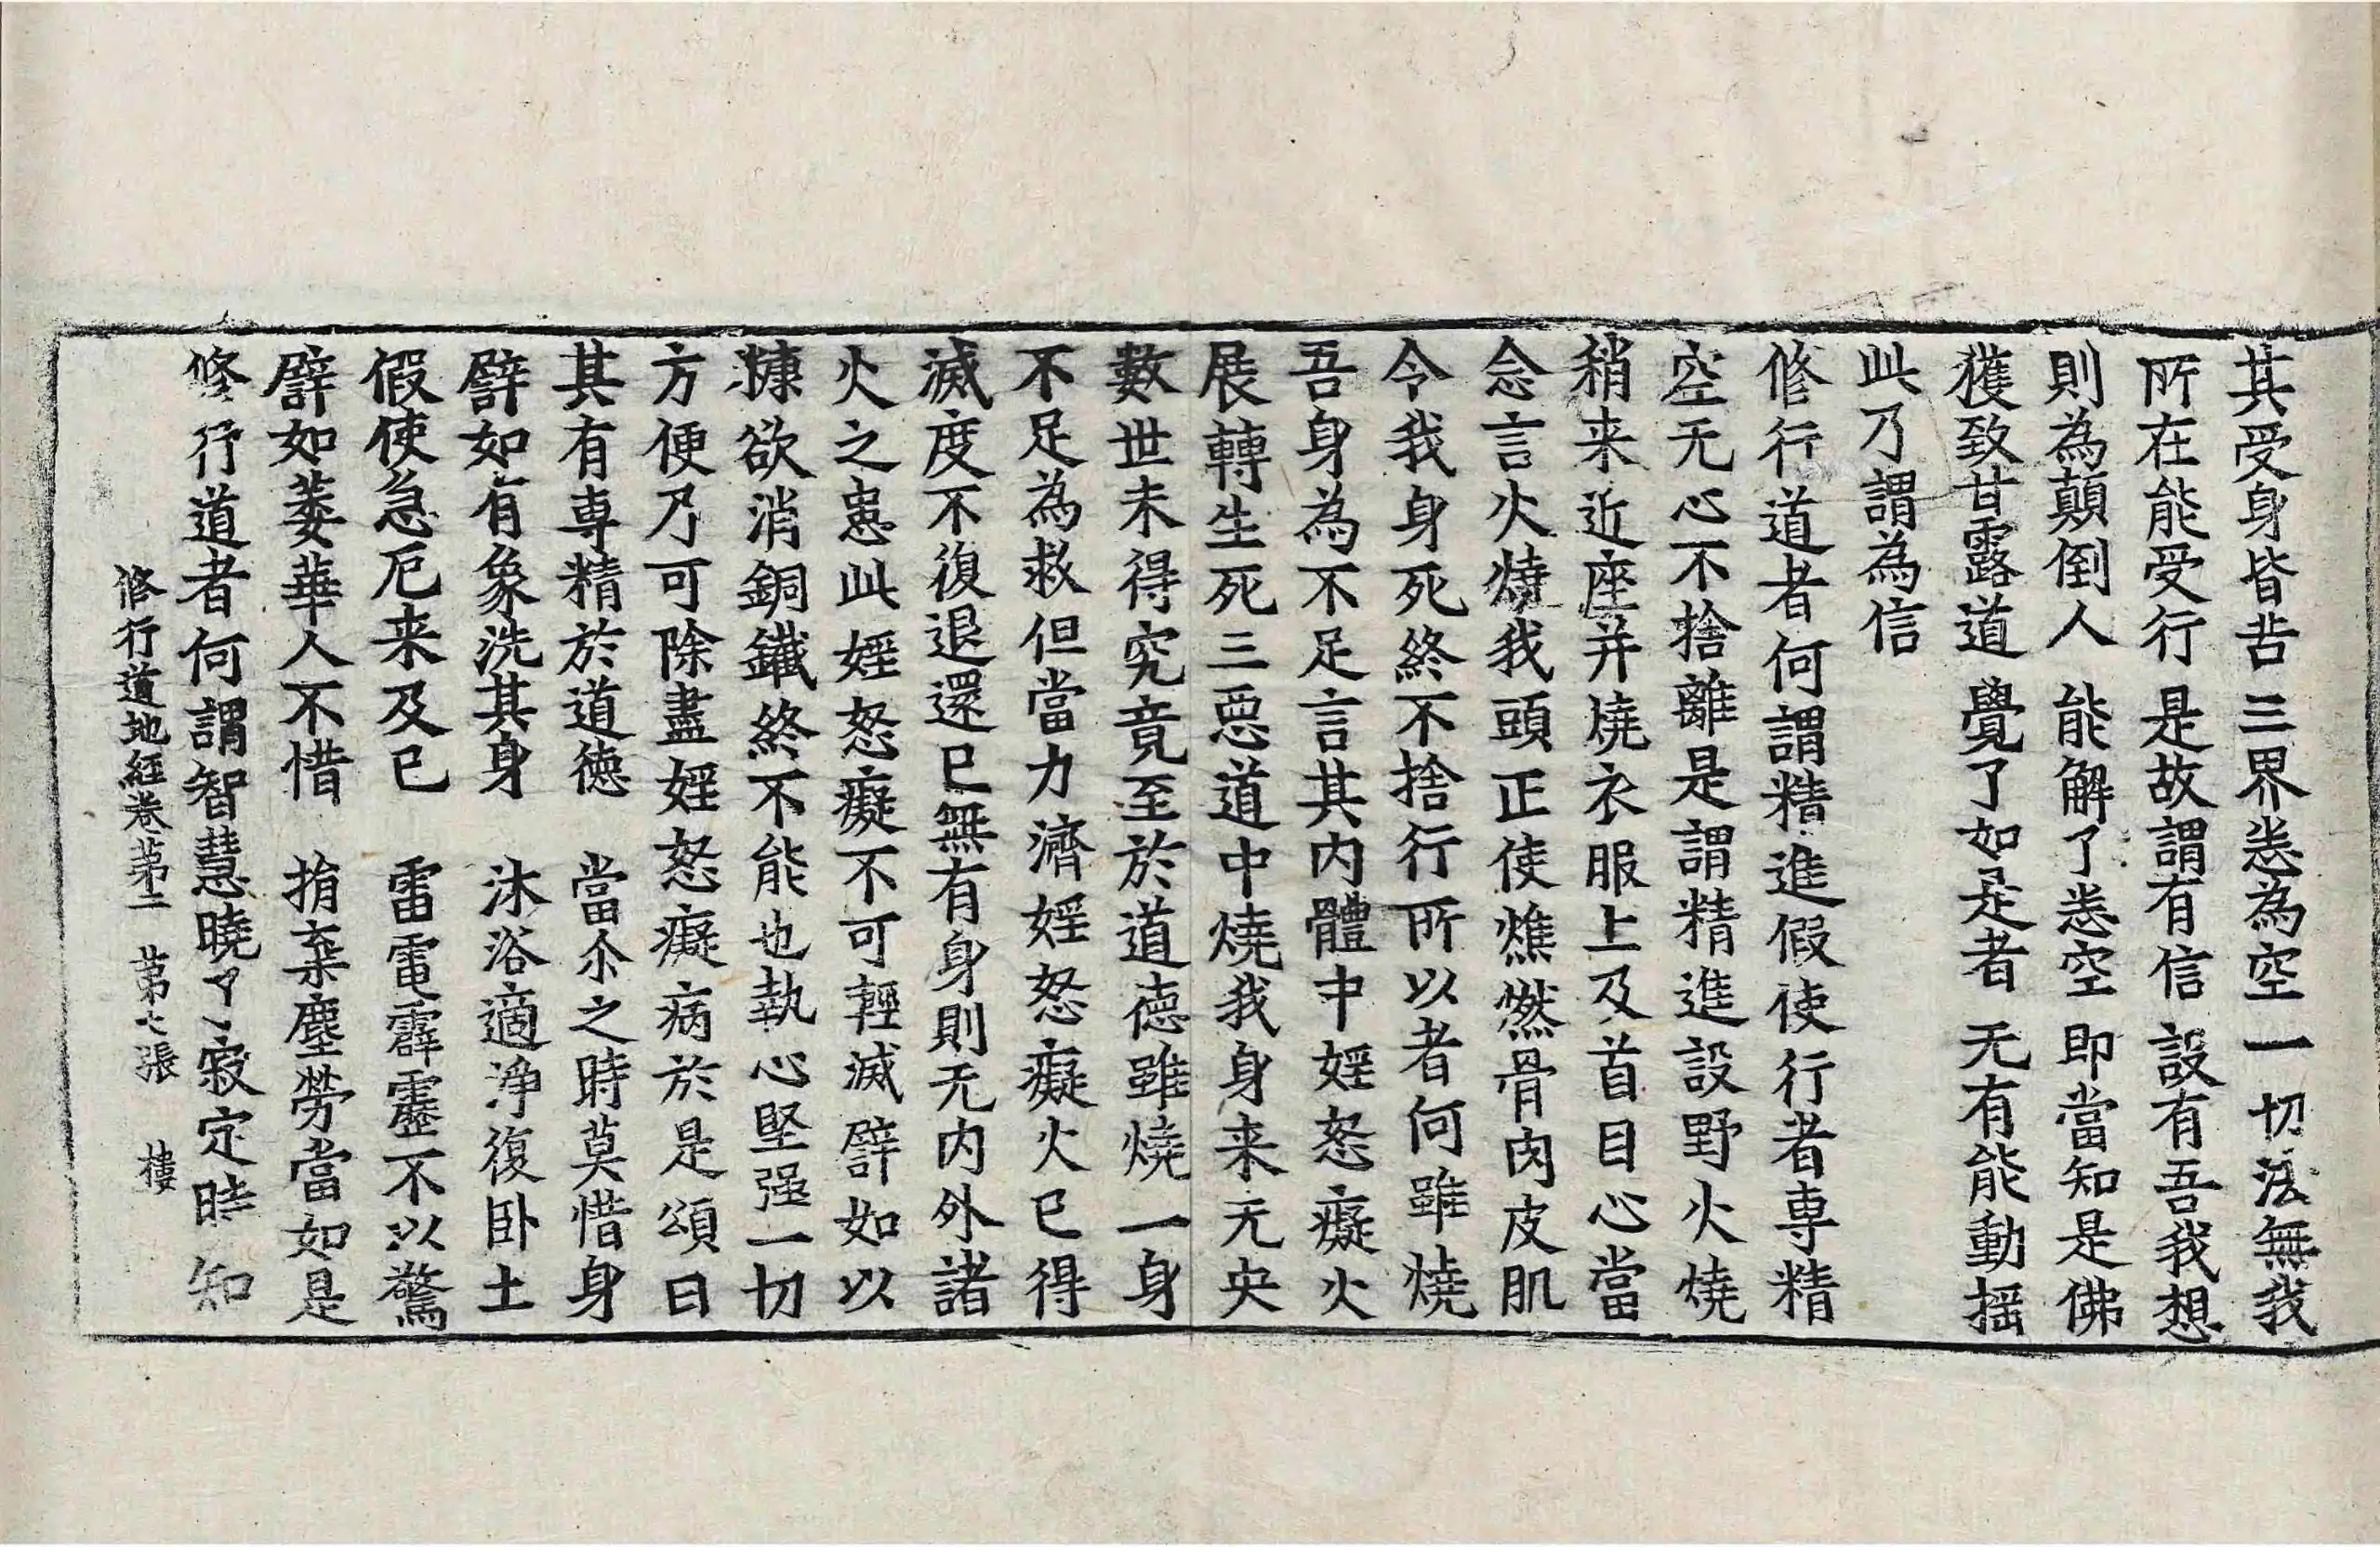 其受身皆苦　三界悉為空　一切法無我
所在能受行　是故謂有信　設有吾我想
則為顛倒人　能解了悉空　即當知是佛
獲致甘露道　覺了如是者　无有能動揺
此乃謂為信
修行道者何謂精進假使行者專精
空无心不捨離是謂精進設野火燒
稍来近座并燒衣服上及首目心當
念言火燒我頭正使燋燃骨肉皮肌
令我身死終不捨行所以者何雖燒
吾身為不足言其内體中婬怒癡火
展轉生死三惡道中燒我身来无央
數世未得究竟至於道德雖燒一身
不足為救但當力濟婬怒癡火已得
滅度不復退還已無有身則无内外諸
火之患此婬怒癡不可輕滅譬如以
糠欲消銅鐵終不能也執心堅强一切
方便乃可除盡婬怒癡病於是頌曰
其有專精於道德　當尒之時莫惜身
譬如有象洗其身　沐浴適淨復卧土
假使急厄来及已　雷電霹靂不以驚
譬如萎華人不惜　捐棄塵勞當如是
修行道者何謂智慧曉了寂定時知
修行道地經卷第二　第七張　樓